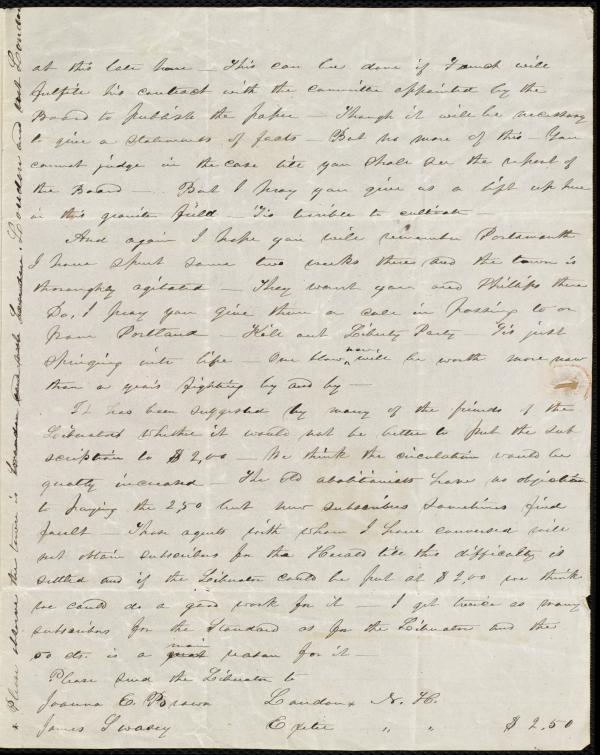 at this late hour – This can be done if French will
fulfile his contract with the committee appointed by the
Board to publish the paper – Though it will be necessary
to give a statements of facts – But no more of this – You
cannot judge in the case till you shall see the report of
the Board – But I pray you give us a lift up here
in this granite field – Tis terrible to cultivate –
And again I hope you will remember Portsmouth
I have spent some two weeks there and the town is
thoroughly agitated – They want you and Phillips there
Do, I pray you give them a call in passing to or
from Portland – Kill out Liberty Party – Tis just
springing into life – One blow now will be worth more now
than a years fighting by and by –
It has been suggested by many of the friends of the
Liberator whether it would not be better to put the sub
scription to $ 2,00 – We think the circulation would be
greatly increased – The old abolitionists have no objection
to paying the 2,50 but new subscribers sometimes find
fault – Those agents with whom I have conversed will
not obtain subscribers for the Herald till this difficulty is
settled and if the Liberator could be put at $ 2,00 we think
we could do a good work for it – I get twice as many
subscribers for the Standard as for the Liberator and the
50 cts. is a great main reason for it –
Please send the Liberator to
Joanna C. Brown Loudon N. H.
James Swasey Exeter " " $ 2,50
Please observe the town is Loudon and not London